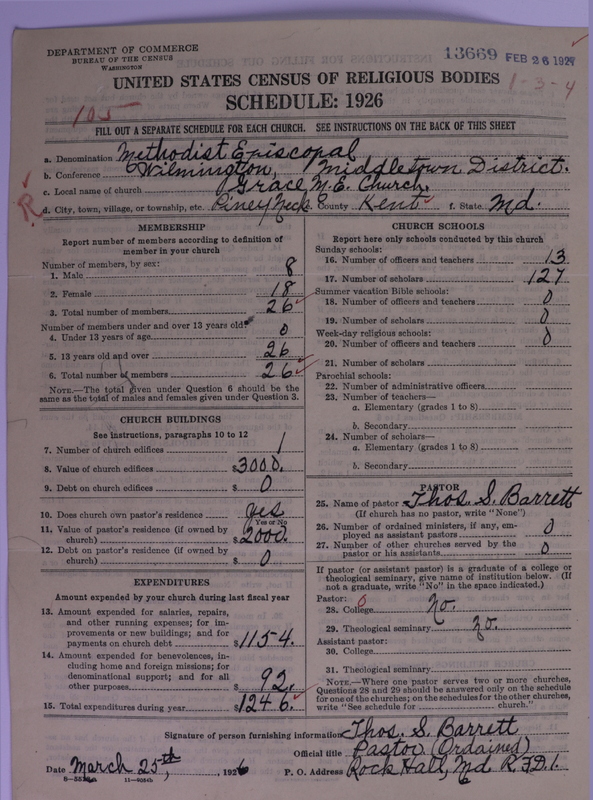 DEPARTMENT OF COMMERCE
BUREAU OF THE CENSUS
WASHINGTON
13669 FEB 26 1927
UNITED STATES CENSUS OF RELIGIOUS BODIES
1-3-4
SCHEDULE: 1926
105
FILL OUT A SEPARATE SCHEDULE FOR EACH CHURCH. SEE INSTRUCTIONS ON THE BACK OF THIS SHEET
a. Denomination Methodist Episcopal
b. Conference Wilmington, Middletown District.
c. Local name of church Grace M.E. Church.
R
d. City, town, village, or township, etc. Piney Neck e. County Kent f. State Md.
MEMBERSHIP
Report number of members according to definition of
member in your church
Number of members, by sex:
1. Male 8
2. Female 18
3. Total number of members 26
Number of members under and over 13 years old:
4. Under 13 years of age 0
5. 13 years old and over 26
6. Total number of members 26
NOTE.—The total given under Question 6 should be the
same as the total of males and females given under Question 3.
CHURCH BUILDINGS
See instructions, paragraphs 10 to 12
7. Number of church edifices 1
8. Value of church edifices $3000.
9. Debt on church edifices $ 0
10. Does church own pastor's residence yes
Yes or No
11. Value of pastor's residence (if owned by
church) $2000.
12. Debt on pastor's residence (if owned by
church) $ 0
EXPENDITURES
Amount expended by your church during last fiscal year
13. Amount expended for salaries, repairs,
and other running expenses; for im-
provements or new buildings; and for
payments on church debt $1154.
14. Amount expended for benevolences, in-
cluding home and foreign missions; for
denominational support; and for all
other purposes $ 92.
15. Total expenditures during year $1246.
CHURCH SCHOOLS
Report here only schools conducted by this church
Sunday schools:
16. Number of officers and teachers 13
17. Number of scholars 127
Summer vacation Bible schools:
18. Number of officers and teachers 0
19. Number of scholars 0
Week-day religious schools:
20. Number of officers and teachers 0
21. Number of scholars
Parochial schools:
22. Number of administrative officers
23. Number of teachers—
a. Elementary (grades 1 to 8)
b. Secondary
24. Number of scholars—
a. Elementary (grades 1 to 8)
b. Secondary
PASTOR
25. Name of pastor Thos. S. Barrett
(If church has no pastor, write "None")
26. Number of ordained ministers, if any, em-
ployed as assistant pastors 0
27. Number of other churches served by the
pastor or his assistants 0
If pastor (or assistant pastor) is a graduate of a college or
theological seminary, give name of institution below. (If
not a graduate, write "No" in the space indicated.)
Pastor: 0
28. College No.
29. Theological seminary No.
Assistant pastor:
30. College
31. Theological seminary
NOTE.—Where one pastor serves two or more churches,
Questions 28 and 29 should be answered only on the schedule
for one of the churches; on the schedules for the other churches,
write "See schedule for church."
Signature of person furnishing information Thos. S. Barrett
Official title Pastor (Ordained)
Date March 25th, 1926 P. O. Address Rock Hall, Md. R.F.D. 1.